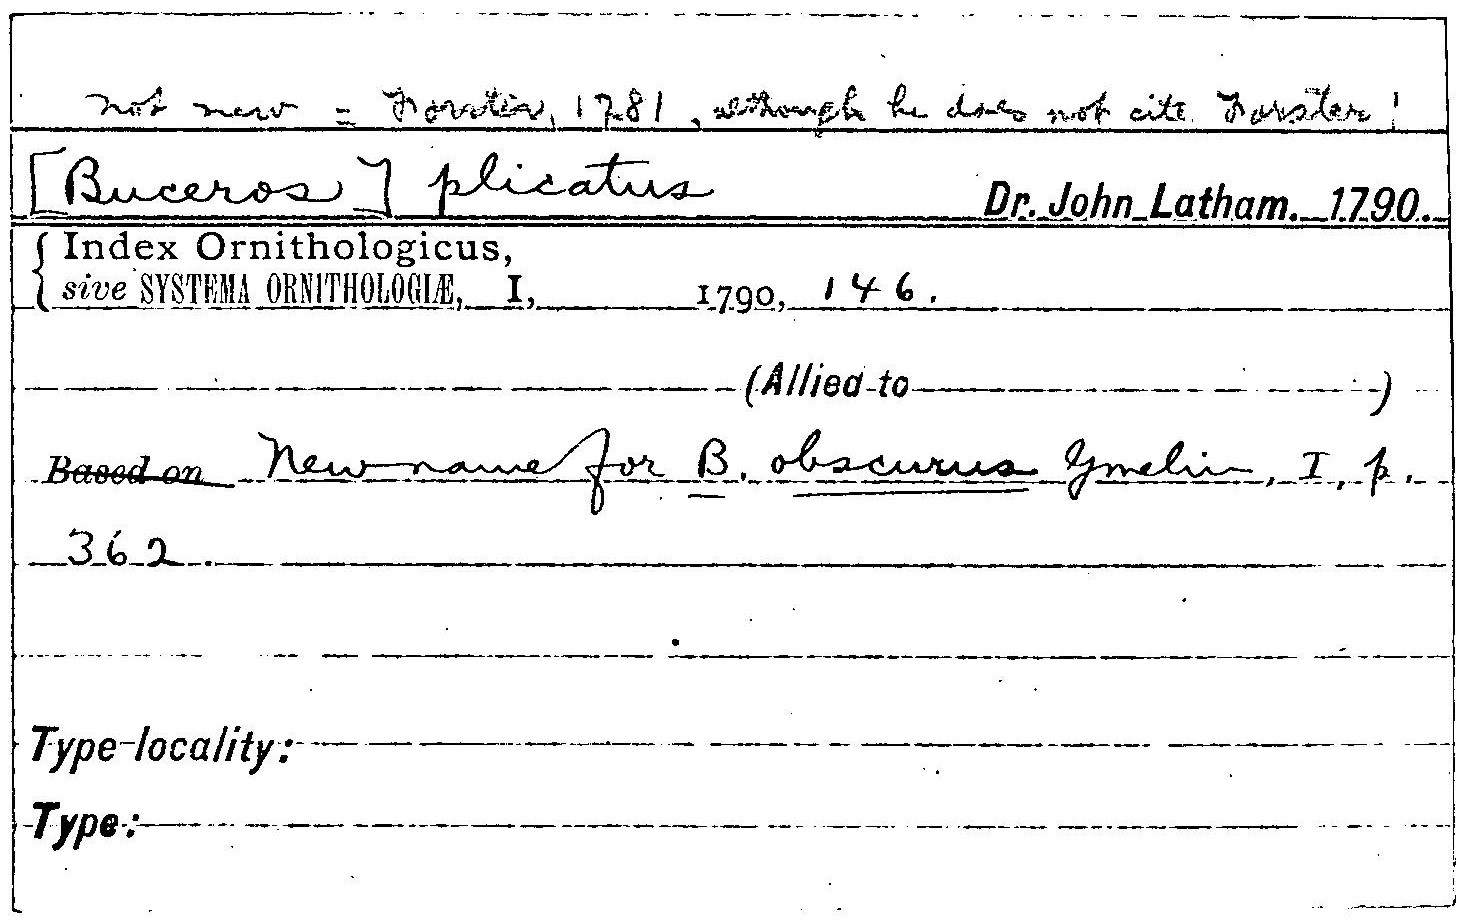 not new = Forster, 1781, although he does not cite Forster!
[Buceros] plicatus Dr. John Latham. 1790.
Index Ornithologicus,
sive SYSTEMA ORNITHOLOGIÆ, I, 1790, 146.
(Allied to )
Based on New name for B. obscurus Gmelin, I, p.
362.
Type locality:
Type: